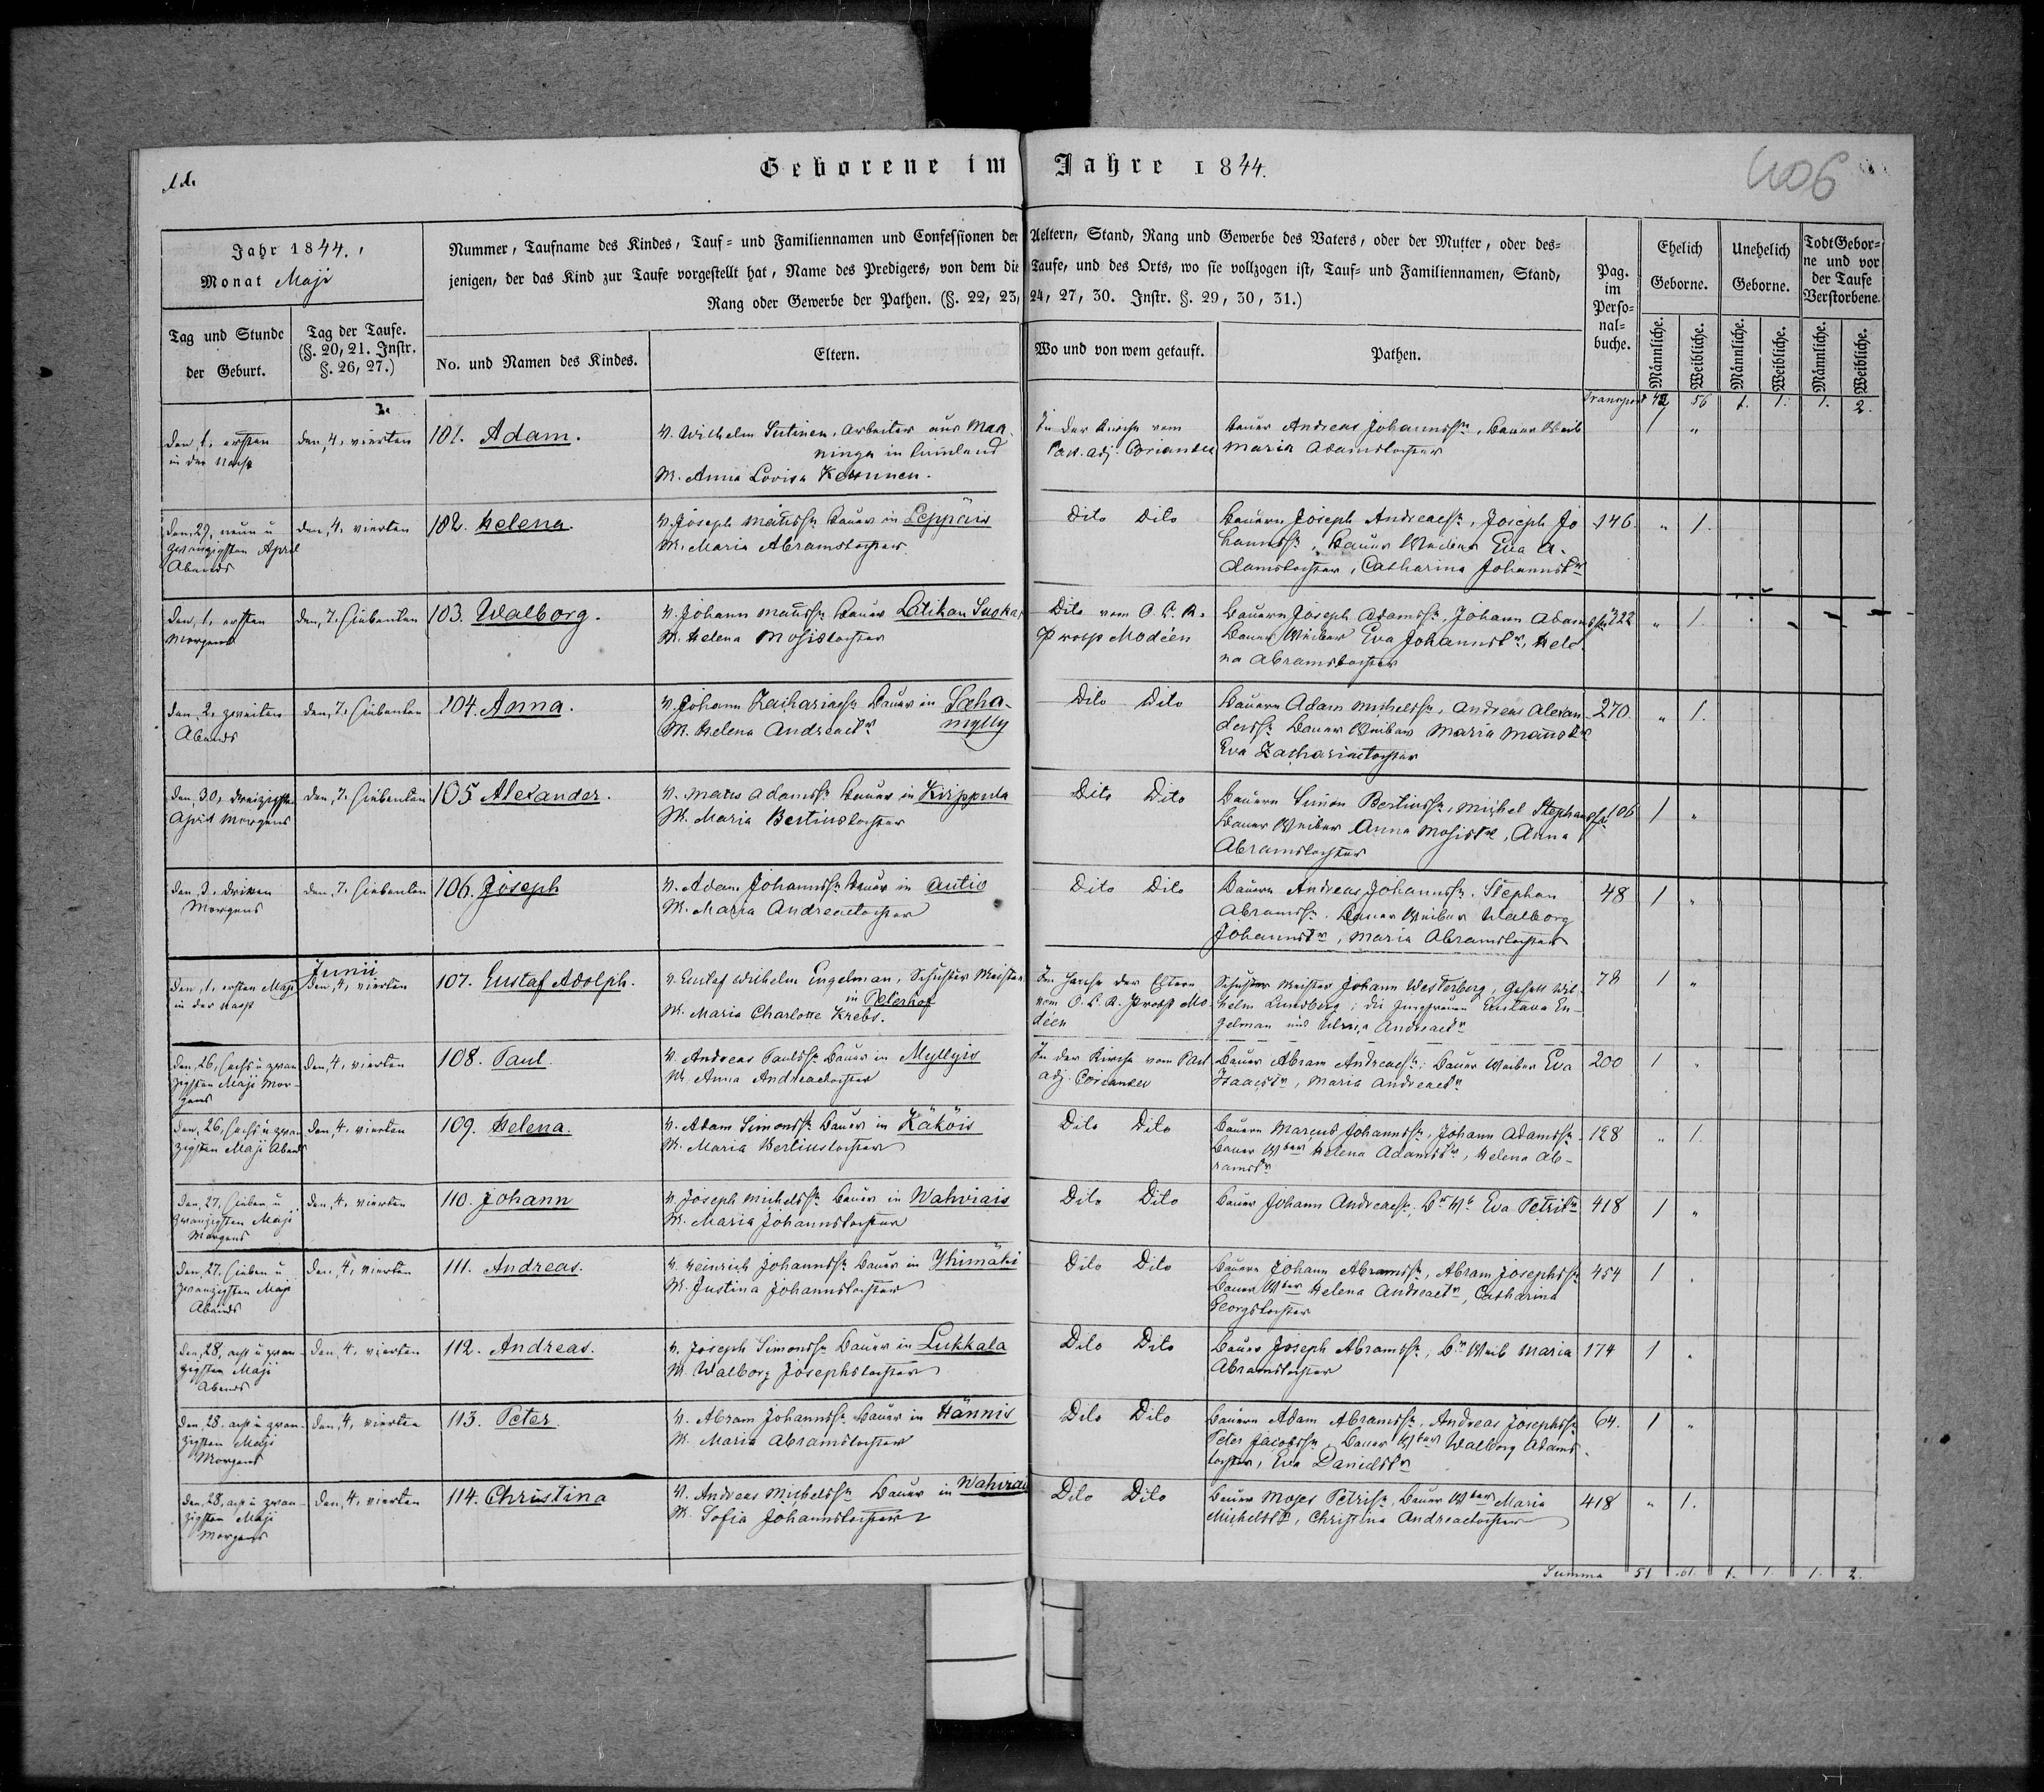 Geborene im Jahre 1844.
406
Jahr 1844.
Monat Maji
Nummer, Taufname des Kindes, Tauf- und Familiennamen und Confessionen der Aeltern, Stand, Rang und Gewerbe des Vaters, oder der Mutter, oder des-
jenigen, der das Kind zur Taufe vorgestellt hat, Name des Predigers, von dem die Taufe, und des Orts, wo sie vollzogen ist, Tauf- und Familiennamen, Stand,
Rang oder Gewerbe der Pathen. (§. 22, 23, 24, 27, 30. Instr. §. 29, 30, 31.)
Pag.
im
Perso-
nal-
buche.
Ehelich
Geborne.
Unehelich
Geborne.
Todt Gebor-
ne und vor
der Taufe
Verstorbene.
Tag und Stunde
der Geburt.
Tag der Taufe.
(§. 20, 21. Instr.
§. 26, 27.)
No. und Namen des Kindes.
Eltern.
Wo und von wem getauft.
Pathen.
Männliche.
Weibliche.
Männliche.
Weibliche.
Männliche.
Weibliche.
Transport 56 1. 1. 1. 2.
den, 1, ersten
in der Nacht
den, 4, vierten
101. Adam.
V. Wilhelm Sutinen, Arbeiter aus Maa-
ninga in Finnland
M. Anna Lovisa
In der Kirche vom
Past. adj. Coriander
Bauer Andreas Johannssn, Bauer Weib
Maria Adamstochter
1 "
den, 29, neun u
zwanzigsten April
Abends
den, 4, vierten
102. Helena.
V. Joseph Mattssn Bauer in Leppäis
M. Maria Abramstochter
Dito Dito
Bauern Joseph Andreaessn, Joseph Jo
hannssn, Bauer Weiber Eva A-
damstochter, Catharina Johannstr
146. " 1.
den, 1, ersten
Morgens
den, 7, siebenten
103. Walborg.
V. Johann Mattssn Bauer Latikan Suoka
M. Helena Mosistochter
Dito vom O. C. R.
Probst Modéen
Bauern Joseph Adamssn, Johann Adamssn
Bauer Weiber Eva Johannstr, Hele-
na Abramstochter
322 " 1.
den, 2, zweiten
Abends
den, 7, siebenten
104. Anna.
V. Johann Zachariaessn Bauer in Saha-
mylly
M. Helena Andreaetr
Dito Dito
Bauern Adam Michelssn, Andreas Alexan-
derssn Bauer Weiber Maria Mattstr
Eva Zachariaetochter
270. " 1.
den, 30, dreizigsten
April Morgens
den, 7, siebenten
105 Alexander.
V. Matts Adamssn Bauer in Krippula
M. Maria Bertilstochter
Dito Dito
Bauern Simon Bertilssn, Michel Stephanssn
Bauer Weiber Anna Mosistr, Anna
Abramstochter
106 1 "
den, 3, dritten
Morgens
den, 7, siebenten
106. Joseph
V. Adam Johannssn Bauer in Antio
M. Maria Andreaetochter
Dito Dito
Bauern Andreas Johannssn, Stephan
Abramssn. Bauer Weiber Walborg
Johannstr, Maria Abramstochter
48 1 "
den, 1, ersten Maji
in der Nacht
Junii
den, 4, vierten
107. Gustaf Adolph.
V. Gustaf Wilhelm Engelman, Schuster Meister
in Peterhof
M. Maria Charlotte Krebs.
Im Hause der Eltern
vom O. C. R. Probst Mo-
déen
Schuster Meister Johann Westerberg, Gesell Wil-
helm Lundberg; die Jungfrauen Gustava En-
gelman und Ulrica Andreaetr
78 1 "
den, 26, sechs u zwan
zigsten Maji Mor-
gens
den, 4, vierten
108. Paul
V. Andreas Paulssn Bauer in Myllyis
M. Anna Andreaetochter
In der Kirche vom Past
adj. Coriander
Bauer Abram Andreaessn; Bauer Weiber Eva
Isaacstr, Maria Andreaetr
200 1 "
den, 26, sechs u zwan
zigsten Maji Abends
den, 4, vierten
109. Helena.
V. Adam Simonssn Bauer in Käköis
M. Maria Bertilstochter
Dito Dito
Bauern Marcus Johannssn, Johann Adamssn
Bauer Wber Helena Adamstr, Helena Ab-
ramstr
128 " 1.
den, 27, sieben u
zwanzigsten Maji
Morgens
den, 4, vierten
110. Johann
V. Joseph Michelssn Bauer in Wahviais
M. Maria Johannstochter
Dito Dito
Bauer Johann Andreaessn, Br Wb Eva Petritr
418 1 "
den, 27, sieben u
zwanzigsten Maji
Abends
den, 4, vierten
111. Andreas.
V. Heinrich Johannssn Bauer in Yhimäki
M. Justina Johannstochter
Dito Dito
Bauern Johann Abramssn, Abram Josephssn
Bauer Wber Helena Andreaetr, Catharina
Georgstochter
454 1 "
den, 28, acht u zwan-
zigsten Maji
Abends
den, 4, vierten
112. Andreas.
V. Joseph Simonssn Bauer in Lukkala
M. Walborg Josephstochter
Dito Dito
Bauer Joseph Abramssn, Br Weib Maria
Abramstochter
174 1 "
den, 28. acht u zwan-
zigsten Maji
Morgens
den, 4, vierten
113. Peter.
V. Abram Johannssn Bauer in Hännis
M. Maria Abramstochter
Dito Dito
Bauern Adam Abramssn, Andreas Josephssn
Peter Jacobssn, Bauer Wber Walborg Adams-
tochter, Eva Danielstr
64. 1 "
den, 28, acht u zwan-
zigsten Maji
Morgens
den, 4, vierten
114. Christina
V. Andreas Michelssn Bauer in Wahviai
M. Sofia Johannstochter
Dito Dito
Bauer Moses Petrisn, Bauer Wber Maria
Michelstr, Christina Andreaetochter
418 " 1.
Summa 51 61. 1. 1. 1. 2.